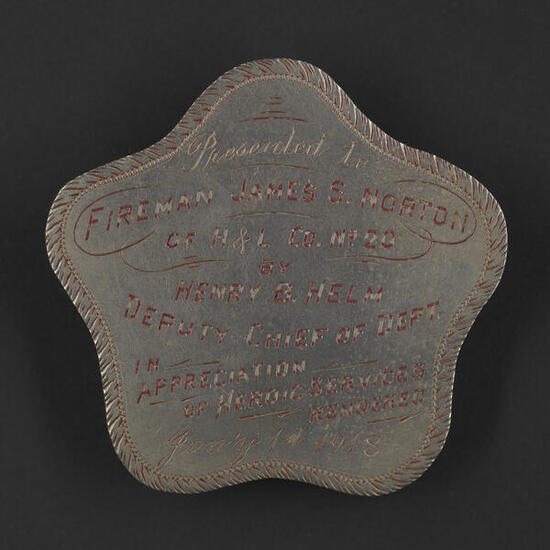 Presented to
FIREMAN JAMES S. NORTON
OF H & L CO. No 20
BY
HENRY B. HELM
DEPUTY CHIEF OF DEPT.
IN
APPRECIATION
OF HEROIC SERVICES
RENDERED
Jan'y 1st 1918